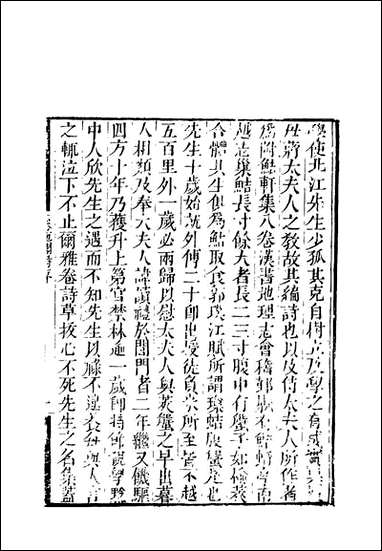 學使北江先生少孤其克自樹立及學之有成
母蔣太夫人之教故其編詩也以及侍太夫人所作者
為附鮚軒集八卷漢書地理志會稽郡鄞有鮚埼亭南
越志璅鮚長寸餘大者長二三寸腹中有蟹子如榆莢
合體共生為鮚取食郭璞江賦所謂璅鮚腹蟹是也
先生十歲始就外傅二十即出授徒負米所至嘗不越
五百里外一歲必兩歸以慰太夫人與蟹之早出暮
人相類及奉太夫人諱讀禮於閭門者二年繼又饑驅
四方十年乃獲升上第官禁林逾一歲即持節視學黔
中人欣先生之遇而不知先生以祿不逮養每與人言
之輒泣下不止爾雅卷詩草拔心不死先生之名集蓋